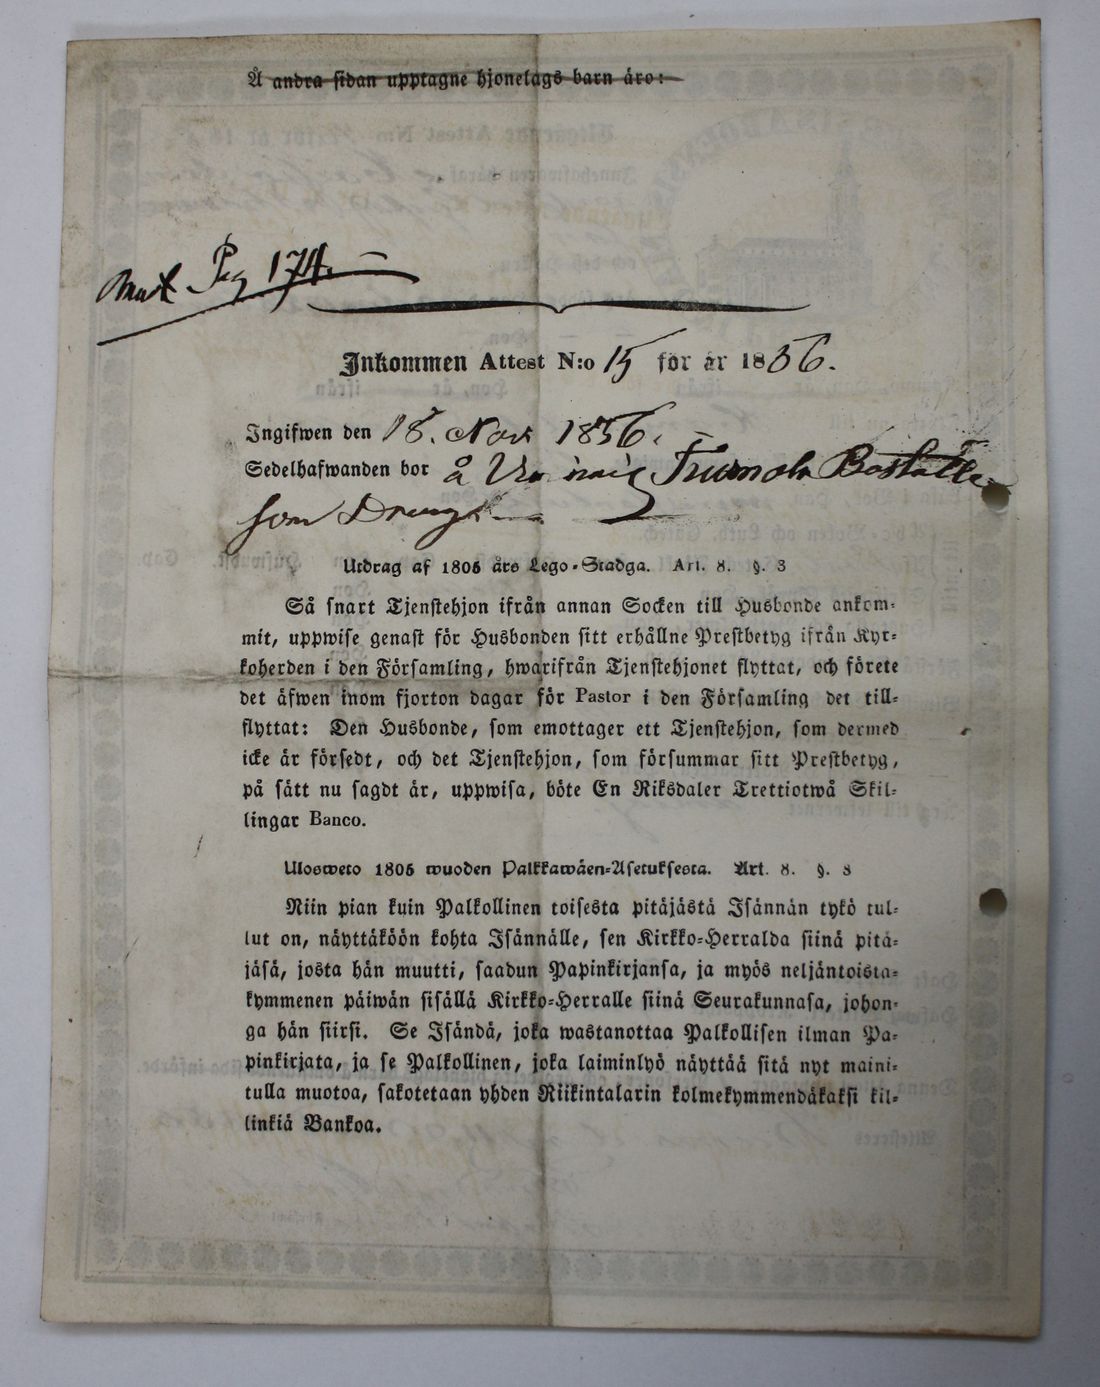 Å andra sidan upptagne hjonelags barn äro:
Pag 174.
Inkommen Attest N:o 15 för år 1856.
Ingifwen den 18. Nov 1856.
Sedelhafwanden bor å
som Dreng
Utdrag af 1805 års Lego-Stadga. Art. 8. §. 3
Så snart Tjenstehjon ifrån annan Socken till Husbonde ankom-
mit, uppwise genast för Husbonden sitt erhållne Prestbetyg ifrån Kyr-
koherden i den Församling, hwarifrån Tjenstehjonet flyttat, och förete
det äfwen inom fjorton dagar för Pastor i den Församling det till-
flyttat: Den Husbonde, som emottager ett Tjenstehjon, som dermed
icke är försedt, och det Tjenstehjon, som försummar sitt Prestbetyg,
på sätt nu sagdt är, uppwisa, böte En Riksdaler Trettiotwå Skil-
lingar Banco.
Ulosweto 1805 wuoden Palkkawäen-Asetuksesta. Art. 8. §. 3
Niin pian kuin Palkollinen toisesta pitäjästä Isännän tykö tul-
lut on, näyttäköön kohta Isännälle, sen Kirkko-Herralda siinä pitä-
jäsä, josta hän muutti, saadun Papinkirjansa, ja myös neljäntoista-
kymmenen päiwän sisällä Kirkko-Herralle siinä Seurakunnasa, johon-
ga hän siirsi. Se Isändä, joka wastanottaa Palkollisen ilman Pa-
pinkirjata, ja se Palkollinen, joka laiminlyö näyttää sitä nyt maini-
tulla muotoa, sakotetaan yhden Riikintalarin kolmekymmendäkaksi kil-
linkiä Bankoa.